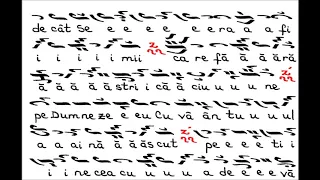 de cât Se e e e e e ra a a fi
i i i i i mii ca re fă ă ă ără
ă ă ă ă ă stri i că ă ciu u u u ne
pe. Dum ne ze e e eu Cu vă ân tu u u ul
a a ai nă ă ă ăs cut pe e e e ti i
i i ne cea cu u u u a de e e e vă